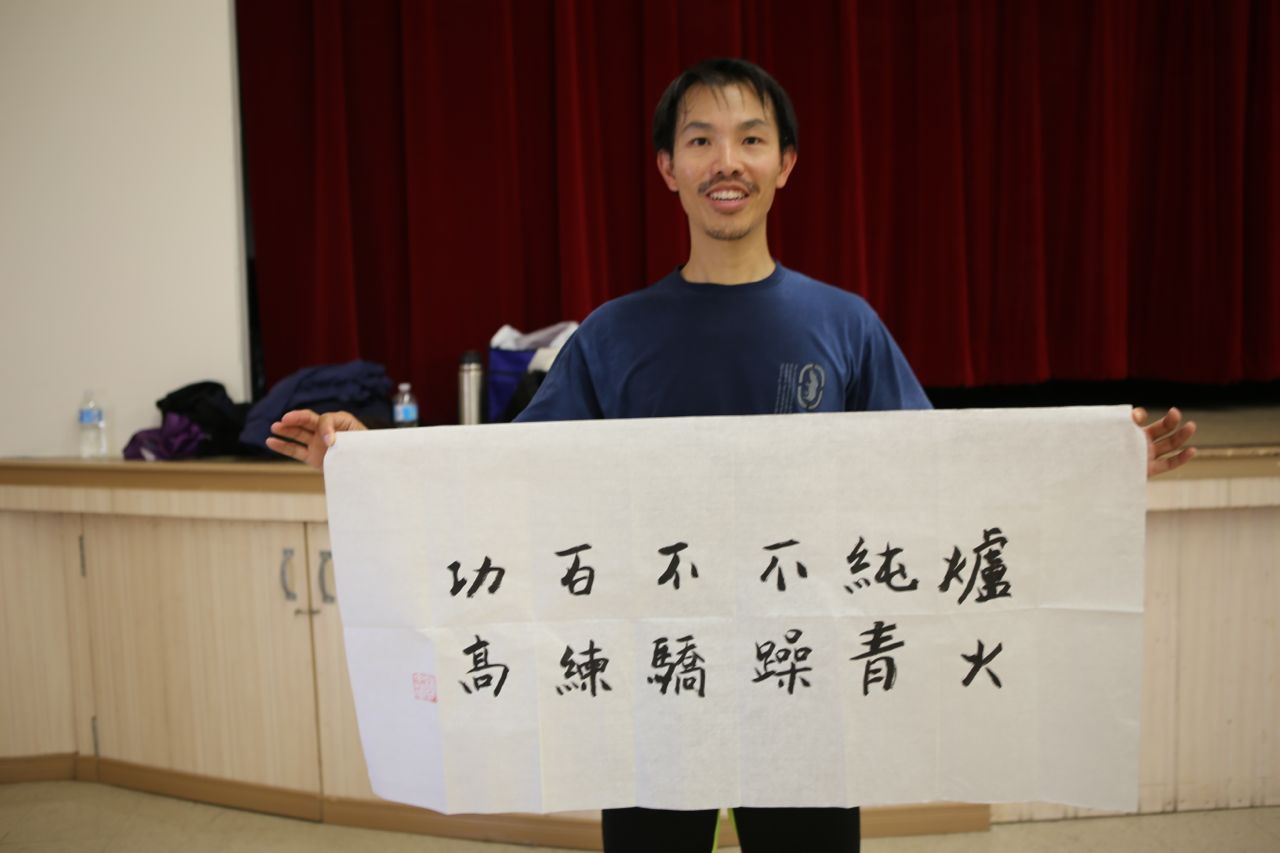 爐火
純青
不躁
不驕
百練
功高